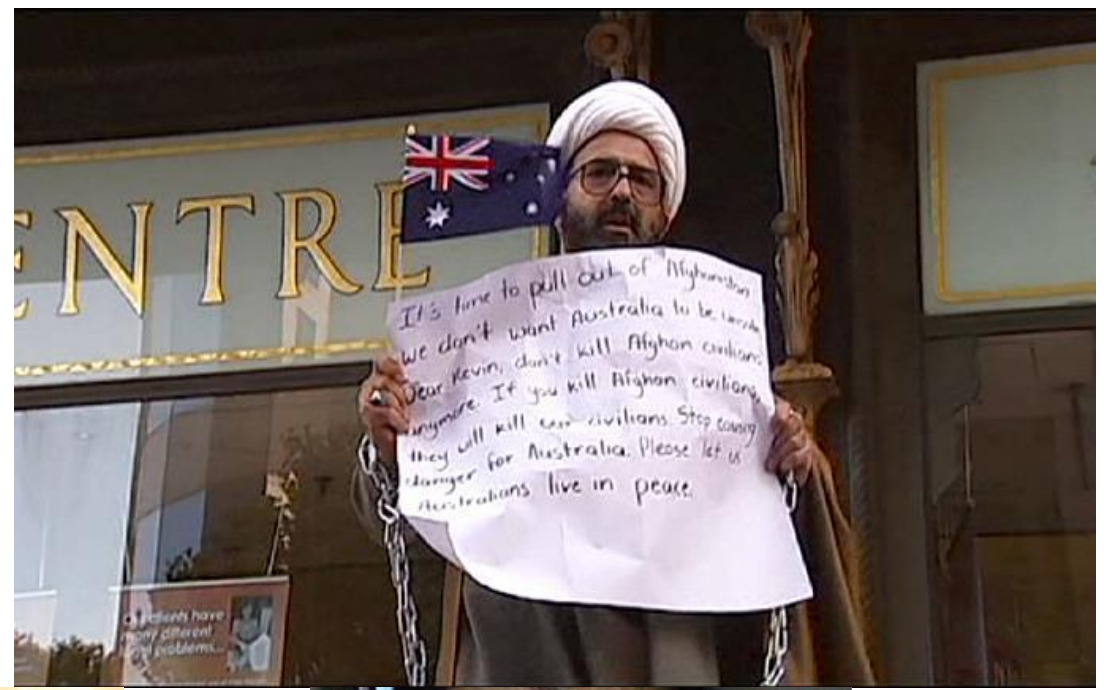 ENTRE
It's time to pull out of Afghanistan
we don't want Australia to be
Dear Kevin, don't kill Afghan civilians
anymore. If you kill Afghan civilians
they will kill our civilians. Stop causing
danger for Australia. Please let us
Australians live in peace.
patients have
many different
problems...